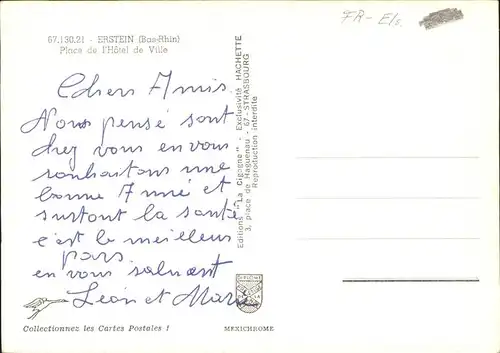 67.130.21 - ERSTEIN (Bas-Rhin)
Place de l'Hôtel de Ville
FR - E/s.
Chers Amis
Nous pensé sont
chez vous en vous
souhaitons une
bonne Année et
surtout la santé
c'est le meilleur
en vous saluant
Léon et Marie
Collectionnez les Cartes Postales !
MEXICHROME
Editions "La Cigogne" - Exclusivité HACHETTE
3, place de Haguenau - 67-STRASBOURG
Reproduction interdite